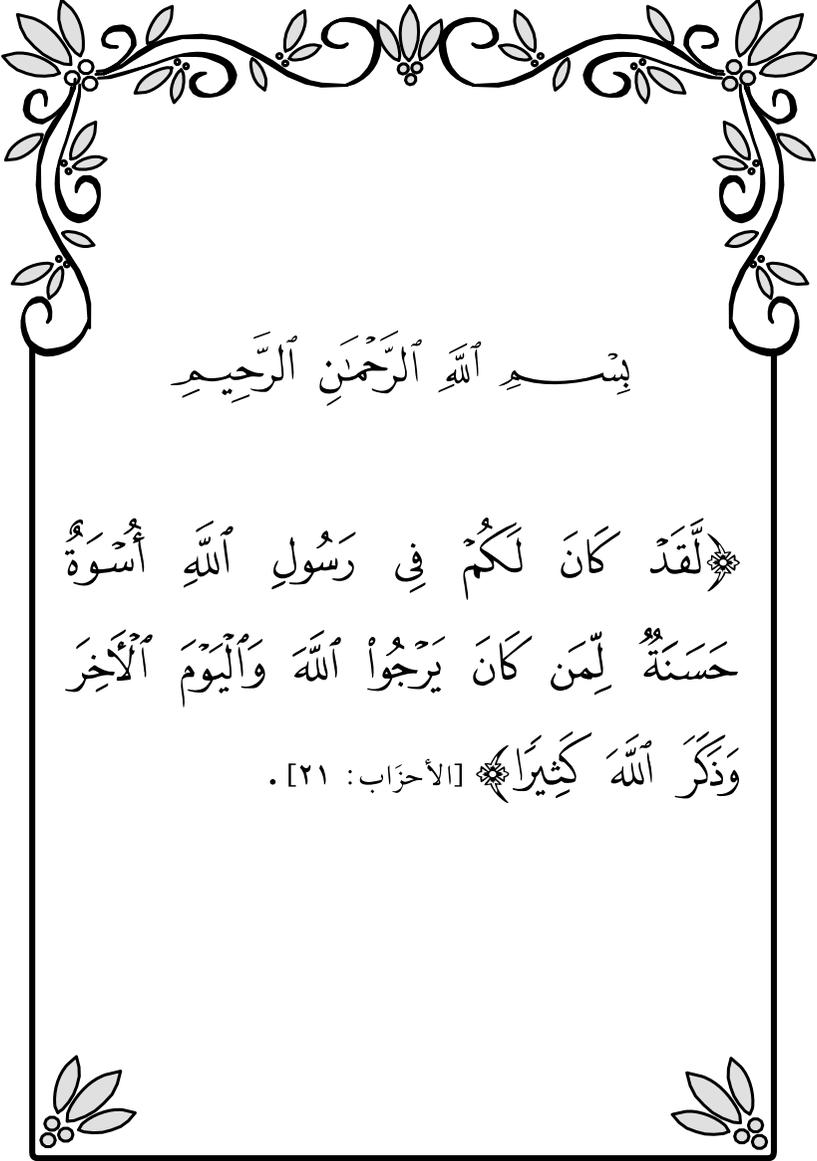 بِسْمِ ٱللَّهِ ٱلرَّحْمَٰنِ ٱلرَّحِيمِ
﴿لَّقَدْ كَانَ لَكُمْ فِى رَسُولِ ٱللَّهِ أُسْوَةٌ
حَسَنَةٌ لِّمَن كَانَ يَرْجُوا۟ ٱللَّهَ وَٱلْيَوْمَ ٱلْأَخِرَ
وَذَكَرَ ٱللَّهَ كَثِيرًا﴾ [الأحزَاب: ٢١].